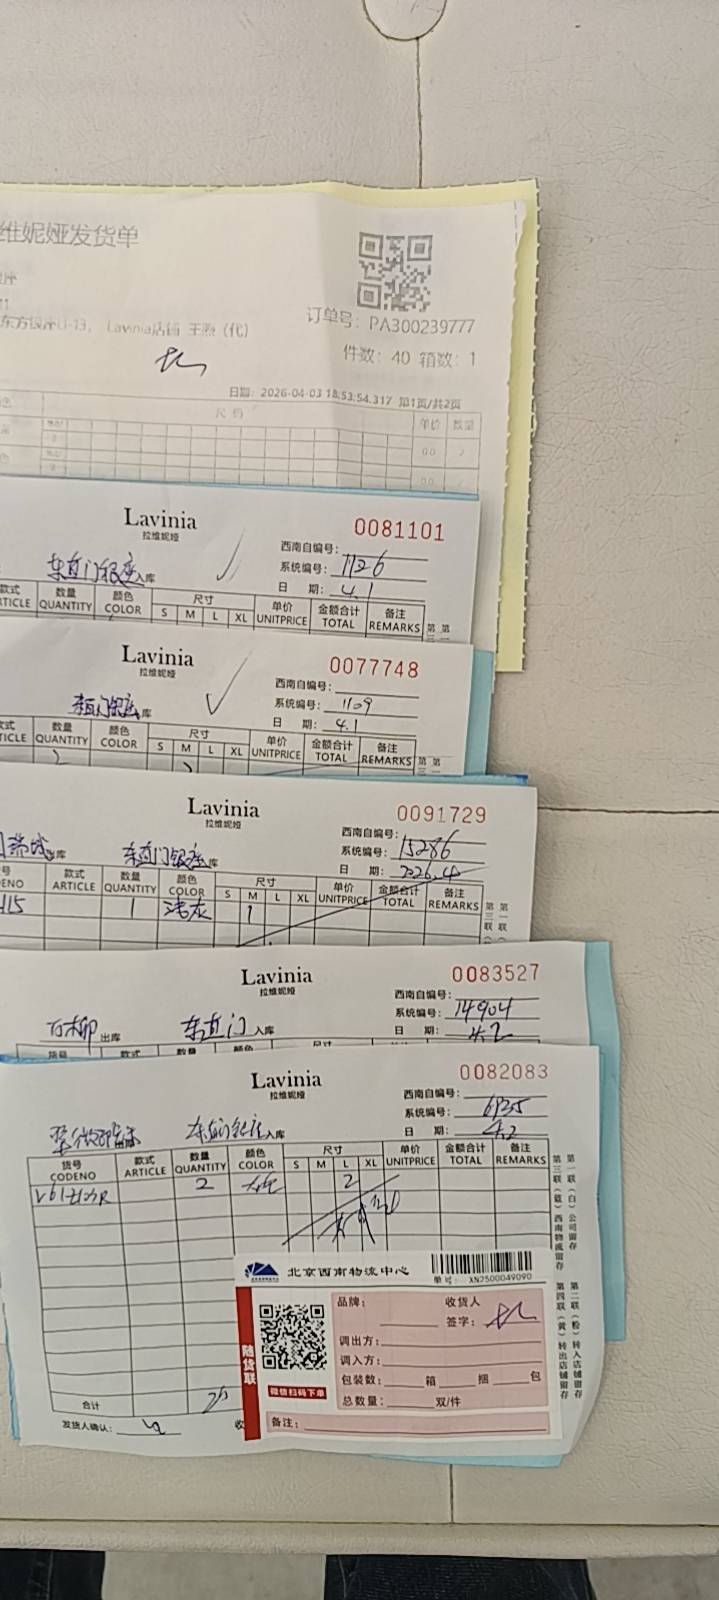 维妮娅发货单
订单号: PA300239777
东方银座U-13, Lavinia店铺 王燕 (代)
件数: 40 箱数: 1
日期: 2026-04-03 18:53:54.317 第1页/共2页
尺码
单价 数量
00 2
Lavinia
拉维妮娅
0081101
西南自编号:
系统编号: 1126
日 期: 4.1
东直门银座入库
款式 数量 颜色 尺寸 单价 金额合计 备注
TICLE QUANTITY COLOR S M L XL UNITPRICE TOTAL REMARKS
Lavinia
拉维妮娅
0077748
西南自编号:
系统编号: 1109
日 期: 4.1
东直门银座库
款式 数量 颜色 尺寸 单价 金额合计 备注
TICLE QUANTITY COLOR S M L XL UNITPRICE TOTAL REMARKS
Lavinia
拉维妮娅
0091729
西南自编号:
系统编号: 15286
日 期: 2026.4
东直门银座库
号 款式 数量 颜色 尺寸 单价 金额合计 备注
DENO ARTICLE QUANTITY COLOR S M L XL UNITPRICE TOTAL REMARKS
115 1 1
Lavinia
拉维妮娅
0083527
西南自编号:
系统编号: 14904
日 期: 4.2
出库 东直门入库
货号 款式 数量 颜色 尺寸
Lavinia
拉维妮娅
0082083
西南自编号:
系统编号: 6935
日 期: 4.2
东直门银座入库
货号 款式 数量 颜色 尺寸 单价 金额合计 备注
CODENO ARTICLE QUANTITY COLOR S M L XL UNITPRICE TOTAL REMARKS
2 2
第一联(白)公司留存
第三联(蓝)西南物流留存
第二联(粉)转入店铺留存
第四联(黄)转出店铺留存
合计
发货人确认:
收
北京西南物流中心
单号: XN2500049090
随货联
微信扫码下单
品牌: 收货人
签字:
调出方:
调入方:
包装数: 箱 捆 包
总数量: 双/件
备注: